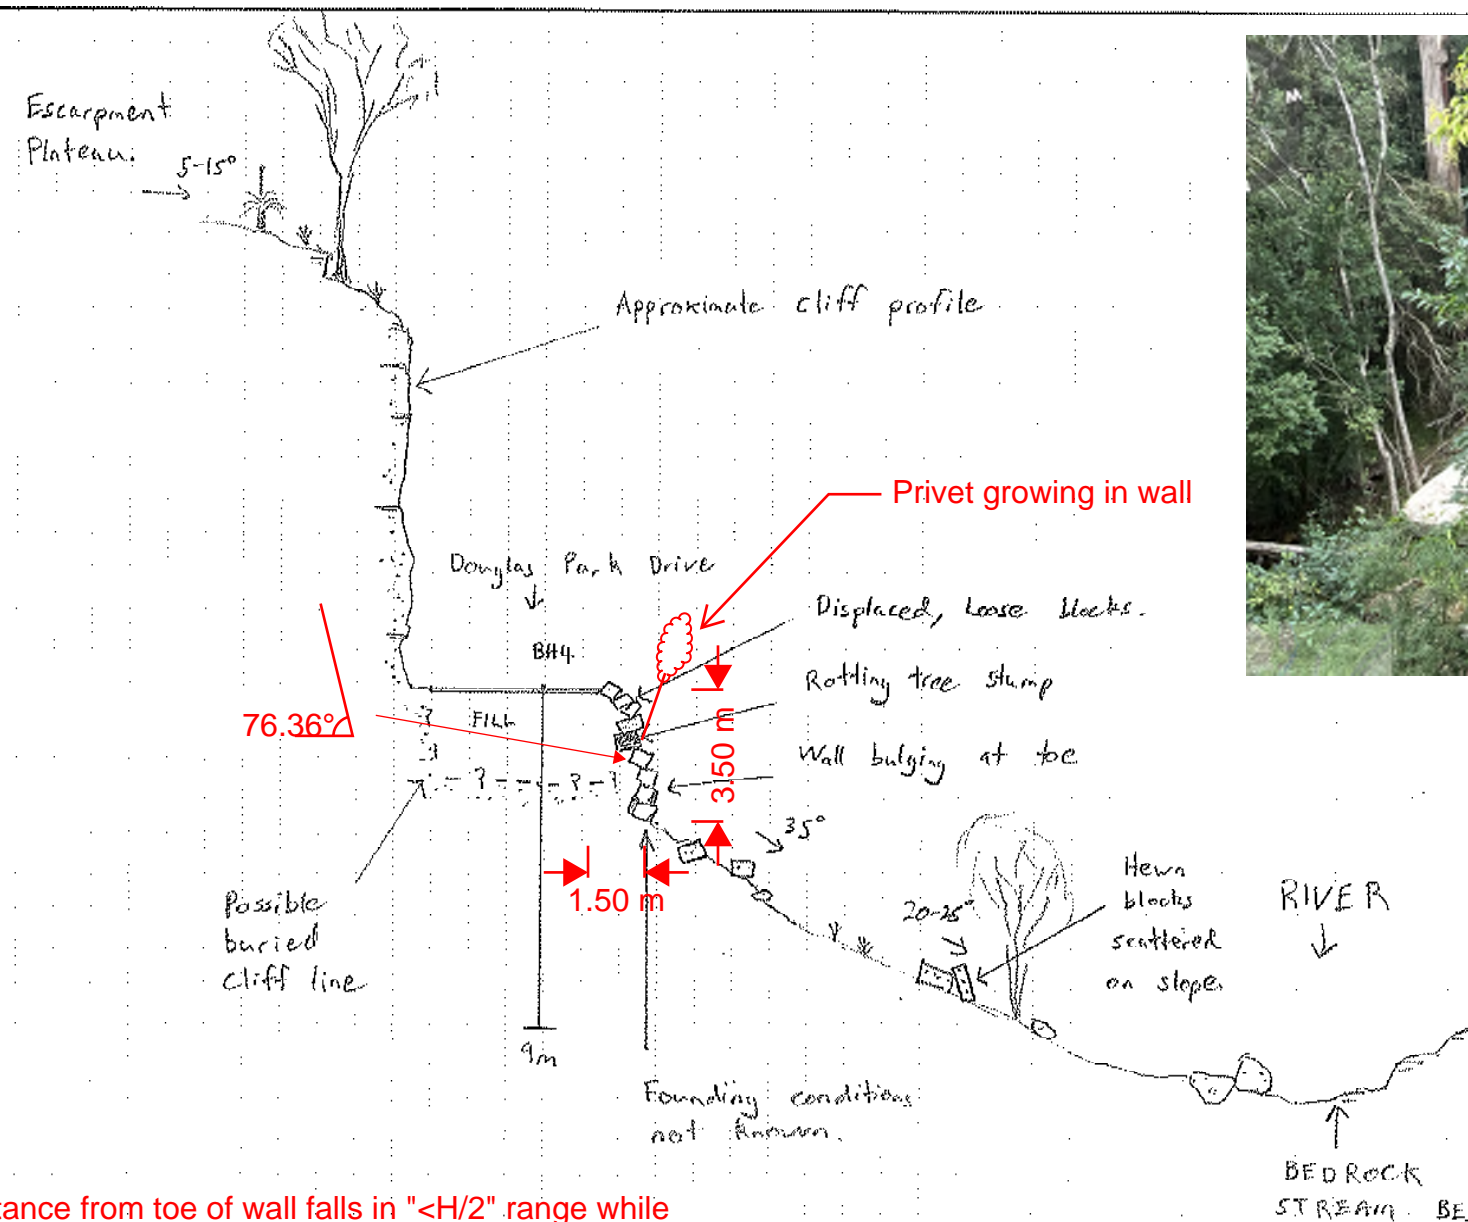 Escarpment
Plateau.
5-15°
Approximate cliff profile
Privet growing in wall
Douglas Park Drive
BH4.
Displaced, loose blocks.
Rotting tree stump
Wall bulging at toe
76.36°
FILL
?
? ? ?
3.50 m
1.50 m
35°
Possible
buried
cliff line
20-25°
Hewn
blocks
scattered
on slope
RIVER
9m
Founding conditions
not known.
BEDROCK
STREAM BE
tance from toe of wall falls in "<H/2" range while